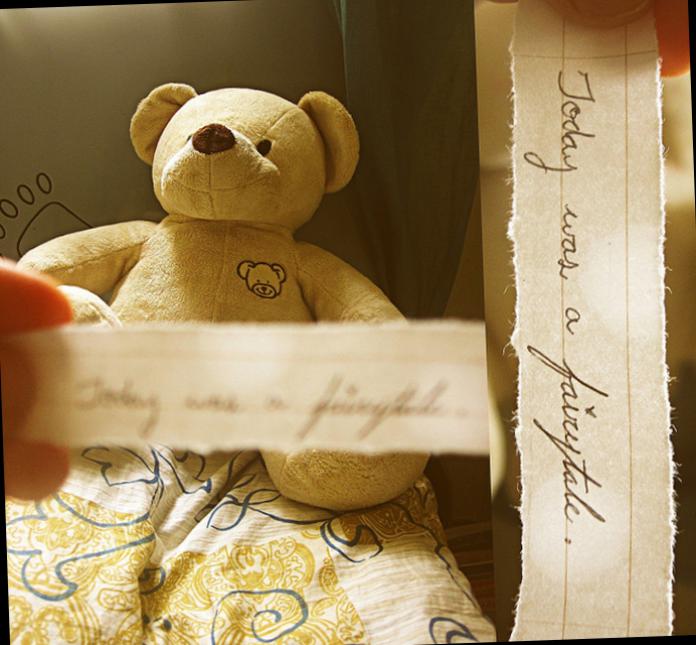 Today was a fairytale.
Today was a fairytale.